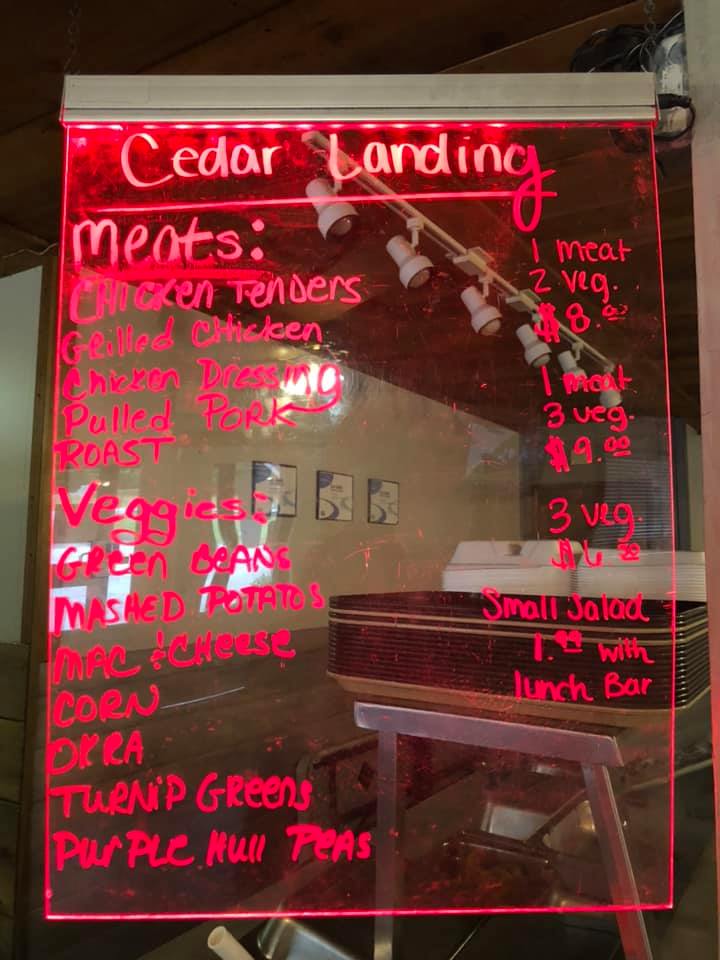 Cedar Landing
Meats:
CHICKEN TENDERS
Grilled CHicken
Chicken Dressing
Pulled PORK
ROAST
Veggies:
GREEN BEANS
MASHED POTATOS
MAC & CHeese
CORN
OKRA
TURNiP GReens
PurPLE Hull PeAs
1 meat
2 veg.
$8.00
1 meat
3 veg.
$9.00
3 veg.
Small Salad
1.99 with
lunch Bar